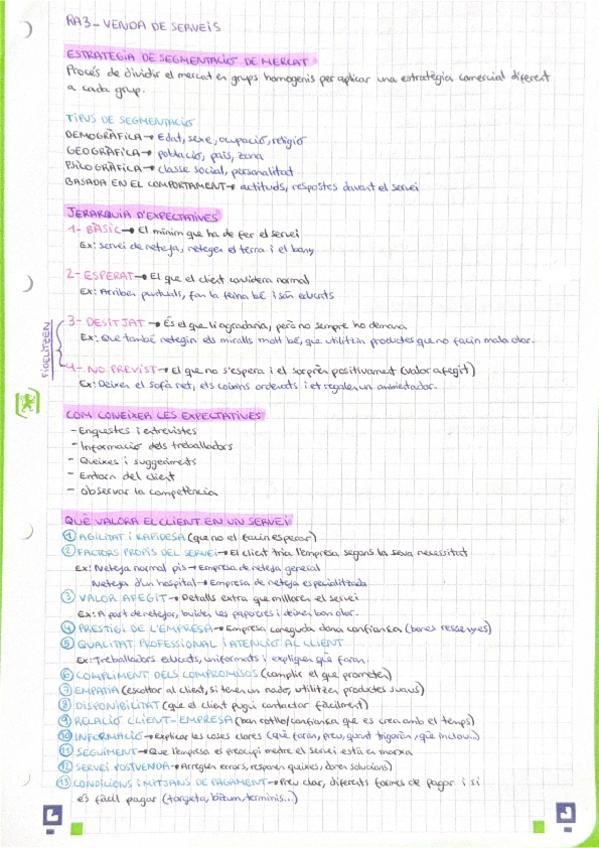 RA3 - VENDA DE SERVEIS
ESTRATEGIA DE SEGMENTACIÓ DE MERCAT
Procés de dividir el mercat en grups homogenis per aplicar una estratègia comercial diferent
a cada grup.
TIPUS DE SEGMENTACIÓ
DEMOGRÀFICA → Edat, sexe, ocupació, religió
GEOGRÀFICA → població, país, zona
PSICOGRÀFICA → classe social, personalitat
BASADA EN EL COMPORTAMENT → actituds, respostes davant el servei
JERARQUIA D'EXPECTATIVES
1- BÀSIC → El mínim que ha de fer el servei
Ex: Servei de neteja, netegen el terra i el bany
2- ESPERAT → El que el client considera normal
Ex: Arriben puntuals, fan la feina bé i són educats
FIDELITZEN
3- DESITJAT → És el que li agradaria, però no sempre ho demana
Ex: Que també netegin els miralls molt bé, que utilitzin productes que no facin mala olor.
4- NO PREVIST → El que no s'espera i el sorprèn positivament (valor afegit)
Ex: Deixen el sofà net, els coixins ordenats i et regalen un ambientador.
COM CONEIXER LES EXPECTATIVES
- Enquestes i entrevistes
- Informació dels treballadors
- Queixes i suggeriments
- Entorn del client
- Observar la competència
QUÈ VALORA EL CLIENT EN UN SERVEI
1 AGILITAT I RAPIDESA (que no el facin esperar)
2 FACTORS PROPIS DEL SERVEI → El client tria l'empresa segons la seva necessitat
Ex: Neteja normal pis → Empresa de neteja general
Neteja d'un hospital → Empresa de neteja especialitzada
3 VALOR AFEGIT → Detalls extra que milloren el servei
Ex: A part de netejar, buiden les papereres i deixen bon olor.
4 PRESTIGI DE L'EMPRESA → Empresa coneguda dona confiança (bones ressenyes)
5 QUALITAT PROFESSIONAL I ATENCIÓ AL CLIENT
Ex: Treballadors educats, uniformats i expliquen què faran.
6 COMPLIMENT DELS COMPROMISOS (complir el que prometen)
7 EMPATIA (escoltar al client, si tenen un nadó, utilitzen productes suaus)
8 DISPONIBILITAT (que el client pugui contactar fàcilment)
9 RELACIÓ CLIENT-EMPRESA (bon rotllo/confiança que es crea amb el temps)
10 INFORMACIÓ → Explicar les coses clares (què faran, preu, quant trigaran, què inclou...)
11 SEGUIMENT → Que l'empresa es preocupi mentre el servei està en marxa
12 SERVEI POSTVENDA → Arreglen errors, responen queixes, donen solucions)
13 CONDICIONS I MITJANS DE PAGAMENT → Preu clar, diferents formes de pagar i si
és fàcil pagar (targeta, bizum, terminis...)